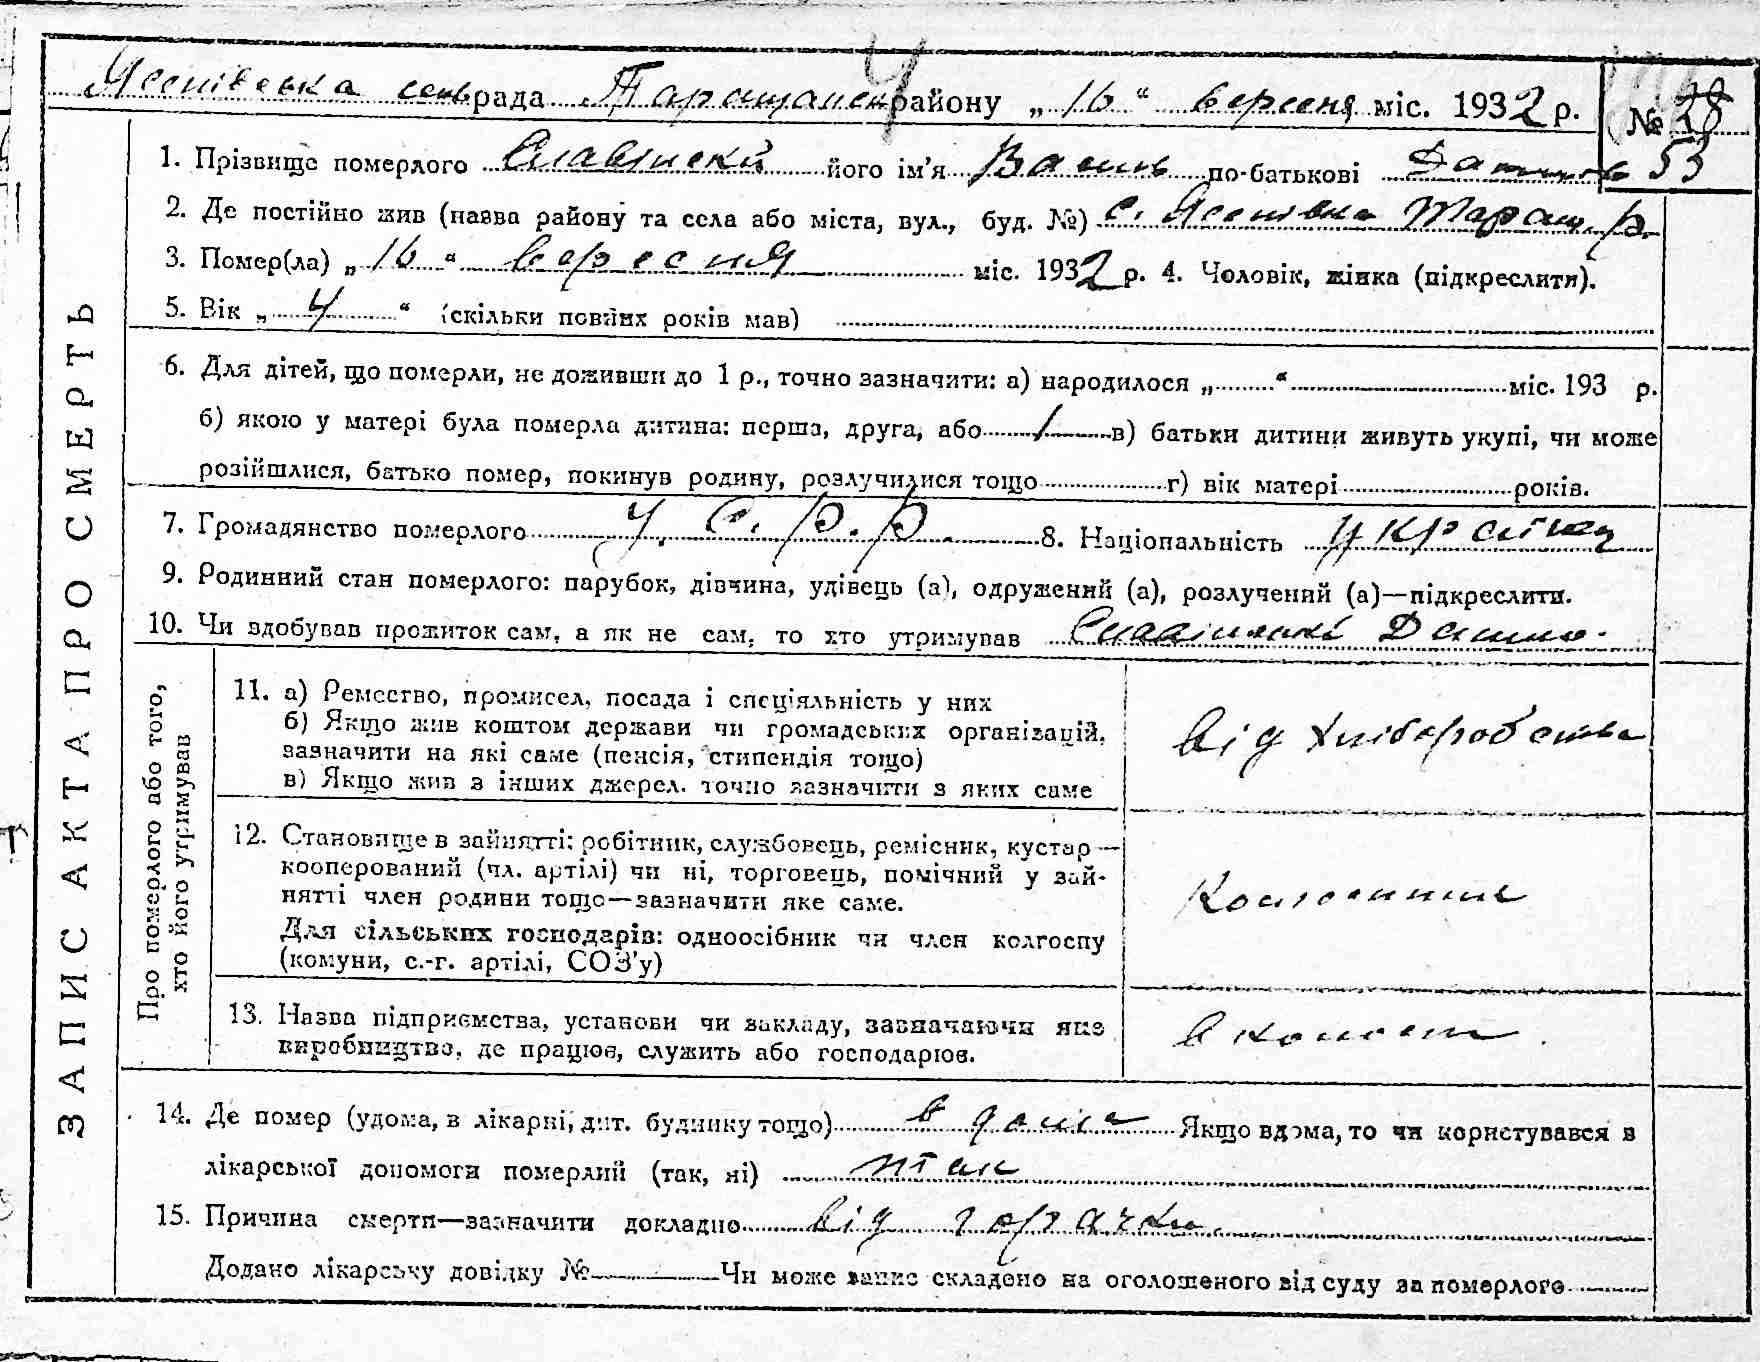 Ясенівська сельрада Таращанськ району „16“ вересня міс. 1932 р. № 28
53
1. Прізвище померлого його ім'я Василь по-батькові
2. Де постійно жив (назва району та села або міста, вул., буд. №) с. Ясенівка Таращ. р.
3. Помер(ла) „16“ вересня міс. 1932 р. 4. Чоловік, жінка (підкреслити).
5. Вік „4“ (скільки повних років мав)
6. Для дітей, що померли, не доживши до 1 р., точно зазначити: а) народилося „ “ міс. 193 р.
б) якою у матері була померла дитина: перша, друга, або в) батьки дитини живуть укупі, чи може
розійшлися, батько помер, покинув родину, розлучилися тощо г) вік матері років.
7. Громадянство померлого У. С. Р. Р. 8. Національність
9. Родинний стан померлого: парубок, дівчина, удівець (а), одружений (а), розлучений (а)—підкреслити.
10. Чи здобував прожиток сам, а як не сам, то хто утримував
ЗАПИС АКТА ПРО СМЕРТЬ
Про померлого або того,
хто його утримував
11. а) Ремество, промисел, посада і спеціяльність у них
б) Якщо жив коштом держави чи громадських організацій,
зазначити на які саме (пенсія, стипендія тощо)
в) Якщо жив з інших джерел, точно зазначити з яких саме
від хліборобства
12. Становище в зайнятті: робітник, службовець, ремісник, кустар—
кооперований (чл. артілі) чи ні, торговець, помічний у зай-
нятті член родини тощо—зазначити яке саме.
Для сільських господарів: одноосібник чи член колгоспу
(комуни, с.-г. артілі, СОЗ'у)
13. Назва підприємства, установи чи закладу, зазначаючи яке
виробництво, де працює, служить або господарює.
в
14. Де помер (удома, в лікарні, дит. будинку тощо) в дома Якщо вдома, то чи користувався з
лікарської допомоги померлий (так, ні) так
15. Причина смерти—зазначити докладно від горячки.
Додано лікарську довідку № Чи може запис складено на оголошеного від суду за померлого